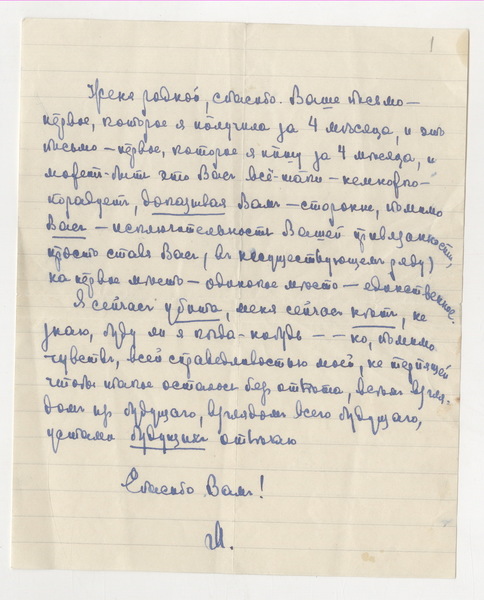 1
Женя родной, спасибо. Ваше письмо —
первое, которое я получила за 4 мѣсяца, и это
письмо — первое, которое я пишу за 4 мѣсяца, и
может-быть это Васъ всё-таки — немножко —
порадуетъ, доказывая Вамъ — сторонне, помимо
Васъ — исключительность Вашей привязанности,
просто ставя Васъ, (въ несуществующемъ ряду)
на первое мѣсто — одинокое мѣсто — единственное.
Я сейчасъ убита, меня сейчасъ нѣтъ, не
знаю, буду ли я когда-нибудь — — но, помимо
чувствъ, всей справедливостью моей, не терпящей
чтобы такое осталось безъ отвѣта, всѣмъ взгля-
домъ изъ будущаго, взглядомъ всего будущаго,
устами будущихъ отвѣчаю
Спасибо Вамъ!